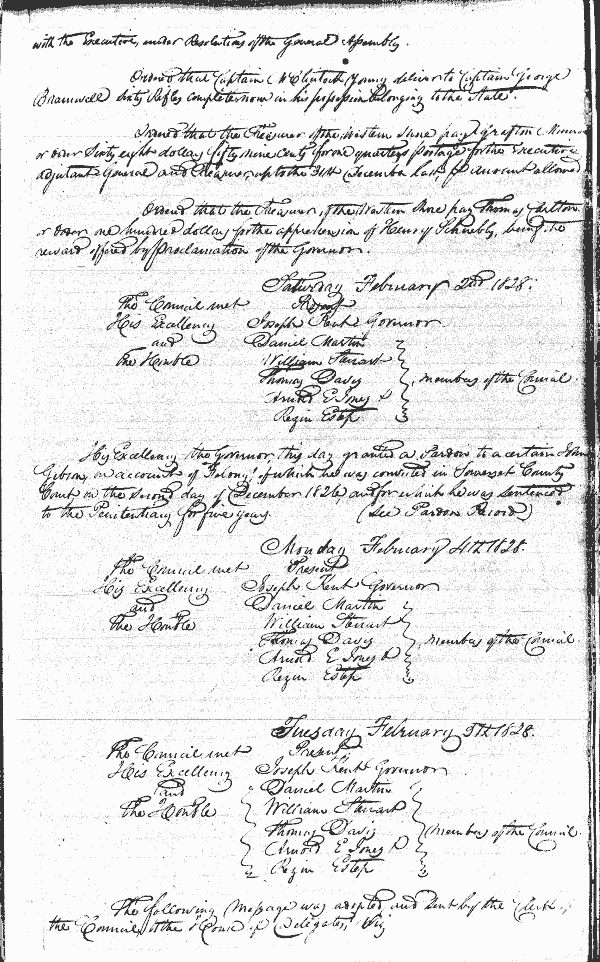 with the Executive, under Resolutions of the General Assembly.
Ordered that Captain McClintock Young deliver to Captain George
Bramwell Sixty Rifles complete now in his possession belonging to the State.
Ordered that the Treasurer of the Western Shore pay Grafton Munroe
or order Sixty eight dollars fifty nine Cents for one quarters postage for the Executive
Adjutant General and Treasurer, up to the 31st December last, p amount allowed
Ordered that the Treasurer of the Western Shore pay Thomas Carlton
or order one hundred dollars for the apprehension of Henry Schnebly, being the
reward offered by Proclamation of the Governor.
Saturday February 2nd 1828.
The Council met Present
His Excellency Joseph Kent Governor
and Daniel Martin
the Honble William Stewart
Thomas Davis members of the Council.
Arnold E Jones &
Rezin Estep
His Excellency the Governor this day granted a Pardon to a certain John
Gibson, on account of "Felony" of which he was convicted in Somerset County
Court on the second day of December 1826, and for which he was sentenced
to the Penitentiary for five years. (See Pardon Record)
Monday February 4th 1828.
The Council met Present
His Excellency Joseph Kent Governor
and Daniel Martin
the Honble William Stewart
Thomas Davis members of the Council
Arnold E Jones &
Rezin Estep
Tuesday February 5th 1828.
The Council met Present
His Excellency Joseph Kent Governor
and Daniel Martin
the Honble William Stewart
Thomas Davis Members of the Council.
Arnold E Jones &
Rezin Estep
The following Message was adopted and sent by the Clerk of
the Council, to the House of Delegates, Viz